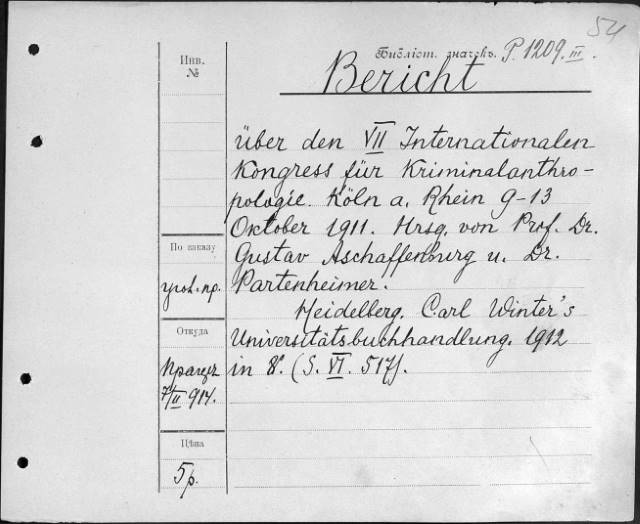 54
Библіот. значекъ. P. 1209. III.
Bericht
über den VII Internationalen
Kongress für Kriminalanthro-
pologie. Köln a. Rhein 9-13
Oktober 1911. Hrsg. von Prof. Dr.
Gustav Aschaffenburg u. Dr.
Partenheimer.
Heidelberg. Carl Winter's
Universitätsbuchhandlung. 1912
in 8°. (S. VI. 517).
Инв.
№
По заказу
Откуда
7/II 914.
Цѣна
5р.